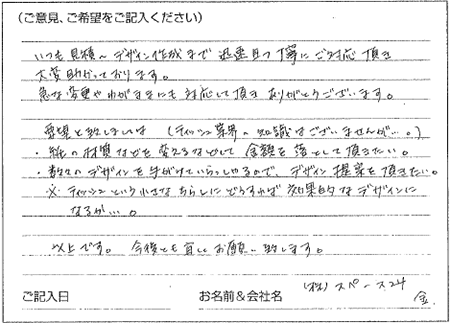 (ご意見、ご希望をご記入ください)
いつも見積〜デザイン作成まで迅速且つ丁寧にご対応頂き
大変助かっております。
急な変更やわがままにも対応して頂きありがとうございます。
要望と致しましては(ティッシュ業界の知識はございませんが…。)
・紙の材質などを変えるなどして金額を落として頂きたい。
・数々のデザインを手がけていらっしゃるので、デザイン提案を頂きたい。
※ティッシュという小さなちらしにどうすれば効果的なデザインに
なるか…。
以上です。今後とも宜しくお願い致します。
ご記入日 お名前&会社名 (株)スペース24
金